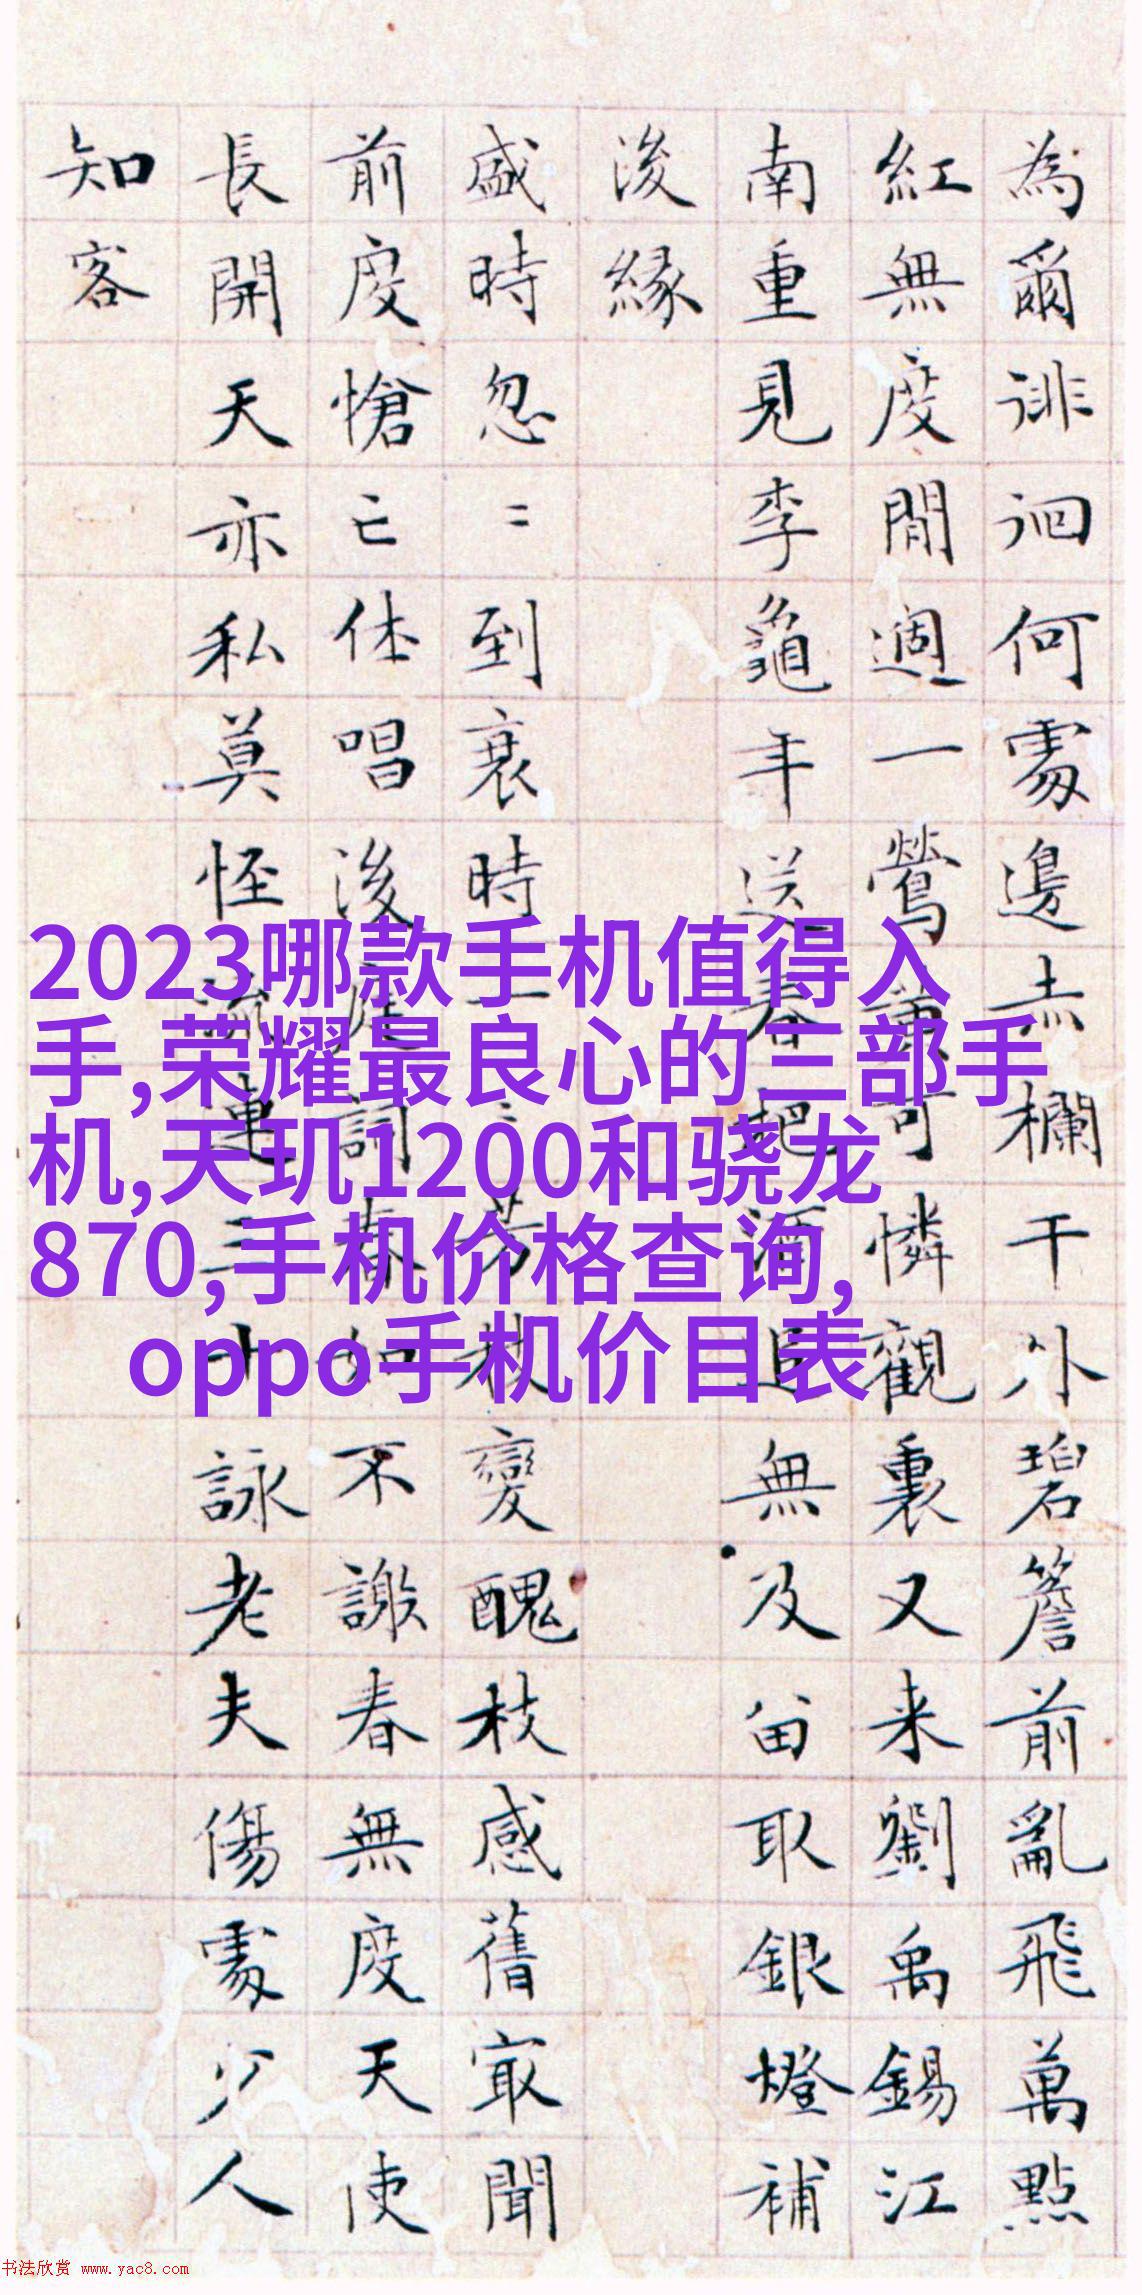 為爾徘徊何處邊赤欄干外碧簷前亂飛萬點
紅無度閒遇一鶯黃可憐觀裏又来劉禹錫江
南重見李龜年送春把酒追無及畄取銀燈補
後緣
盛時忽〻到衰時一〻芳枝變醜枝感舊冣聞
前度愴亡休唱後庭詞春如不謝春無度天使
長開天亦私莫怪流連三十詠老夫傷處少人
知客
2023哪款手机值得入
手,荣耀最良心的三部手
机,天玑1200和骁龙
870,手机价格查询,
oppo手机价目表
书法欣赏 www.yac8.com